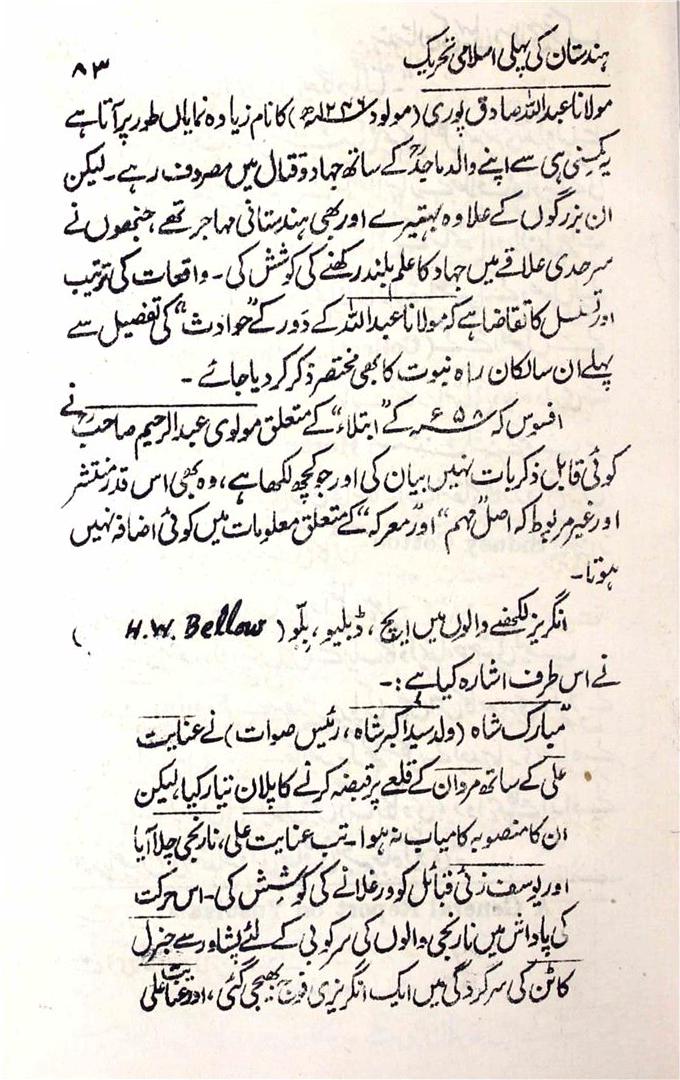 ہندستان کی پہلی اسلامی تحریک
۸۳
مولانا عبداللہ صادق پوری (مولود ۱۲۴۶ھ) کا نام زیادہ نمایاں طور پر آتا ہے
یہ کمسنی ہی سے اپنے والد ماجدؒ کے ساتھ جہاد و قتال میں مصروف رہے۔ لیکن
ان بزرگوں کے علاوہ بہتیرے اور بھی ہندستانی مہاجر تھے، جنھوں نے
سرحدی علاقے میں جہاد کا علم بلند رکھنے کی کوشش کی۔ واقعات کی ترتیب
اور تسلسل کا تقاضا ہے کہ مولانا عبداللہ کے دَور کے "حوادث" کی تفصیل سے
پہلے ان سالکان راہ نبوت کا بھی مختصر ذکر کر دیا جائے۔
افسوس کہ ۵۸ء کے "ابتلاء" کے متعلق مولوی عبدالرحیم صاحبؒ نے
کوئی قابل ذکر بات نہیں بیان کی اور جو کچھ لکھا ہے، وہ بھی اس قدر منتشر
اور غیر مربوط کہ اصل "مہم" اور "معرکہ" کے متعلق معلومات میں کوئی اضافہ نہیں
ہوتا۔
انگریز لکھنے والوں میں ایچ، ڈبلیو، بلّو (H.W. Bellow)
نے اس طرف اشارہ کیا ہے:۔
"مبارک شاہ (ولد سید اکبر شاہ، رئیس صوات) نے عنایت
علی کے ساتھ مروان کے قلعے پر قبضہ کرنے کا پلان تیار کیا، لیکن
ان کا منصوبہ کامیاب نہ ہوا۔ تب عنایت علی، نارنجی چلا آیا
اور یوسف زئی قبائل کو ورغلانے کی کوشش کی۔ اس حرکت
کی پاداش میں نارنجی والوں کی سرکوبی کے لئے پشاور سے جنرل
کاٹن کی سرکردگی میں ایک انگریزی فوج بھیجی گئی، اور عنایت علی